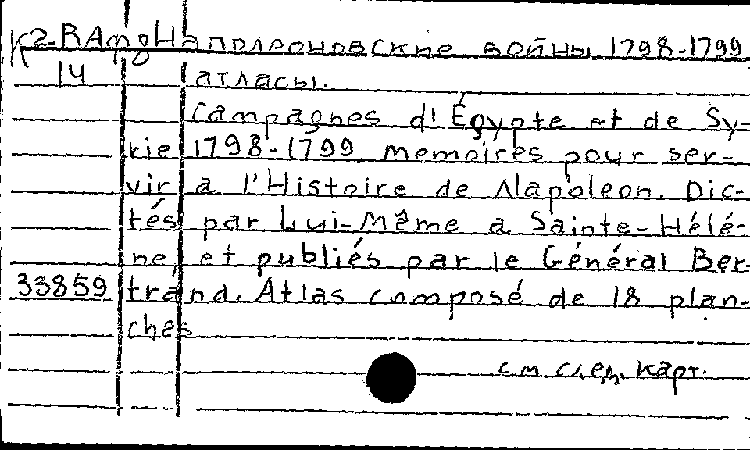 К2-ВАфд Наполеоновские войны 1798-1799
14 атласы.
Campagnes d'Égypte et de Sy-
rie 1798-1799 Memoires pour ser-
vir a l'Histoire de Napoleon. Dic-
tés par Lui-Même a Sainte-Hélé-
ne, et publiés par le Général Ber-
33859 trand. Atlas composé de 18 plan-
ches
см. след. карт.